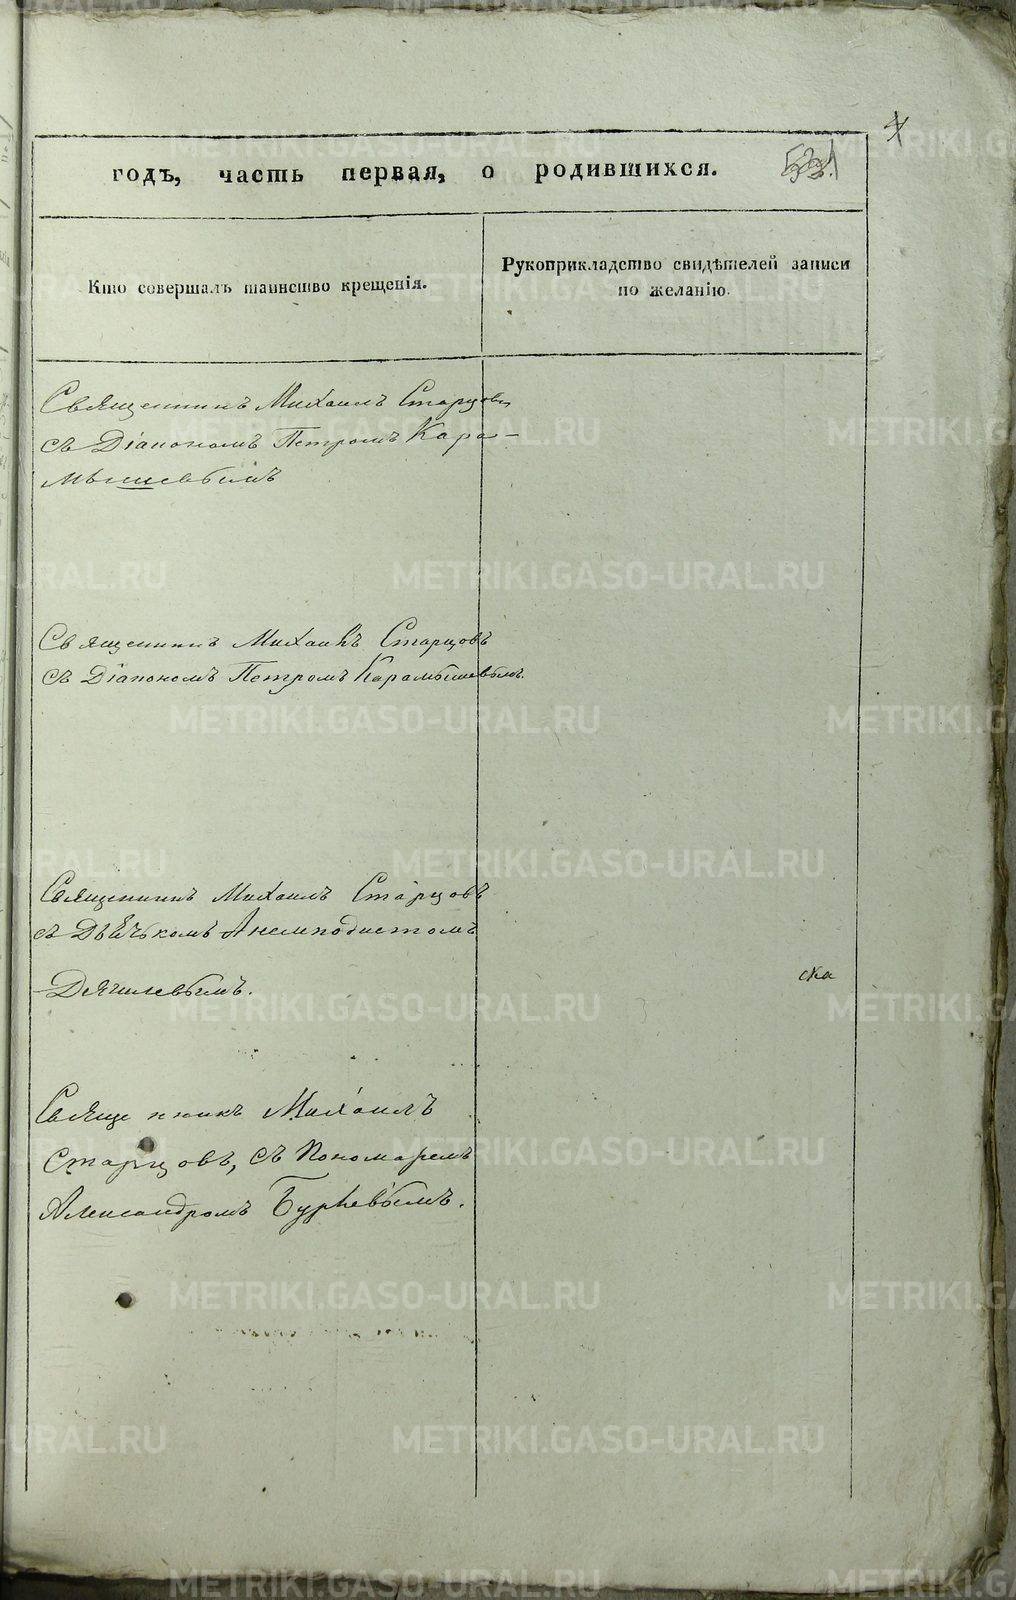 годъ, часть первая, о родившихся.
Кто совершалъ таинство крещенія.
Рукоприкладство свидѣтелей записи
по желанію.
Священникъ Михаилъ Старцовъ
съ Діакономъ Петромъ Кара-
мышевымъ
Священникъ Михаилъ Старцовъ
съ Діакономъ Петромъ Карамышевымъ.
Священникъ Михаилъ Старцовъ
съ Дьячкомъ Анемподистомъ
Дягилевымъ.
ска
Священникъ Михаилъ
Старцовъ, съ Пономаремъ
Александромъ
METRIKI.GASO-URAL.RU